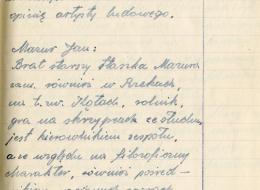 opinię artysty ludowego.
Mazur Jan:
Brat starszy Staszka Mazura
zam. również w Rzekach,
na t.zw. Kątach, rolnik,
gra na skrzypcach ze słuchu,
jest kierownikiem zespołu,
a ze względu na filozoficzny
charakter, również pośred-